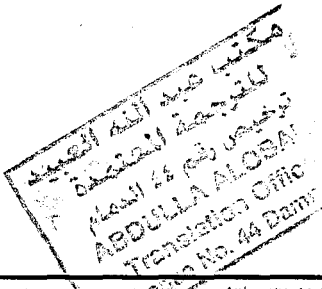 مكتب عبد الله العبيد
للترجمة المعتمدة
ترخيص رقم ٤٤ الدمام
ABDULLA ALOBAI
Translation Offic
No. 44 Damm